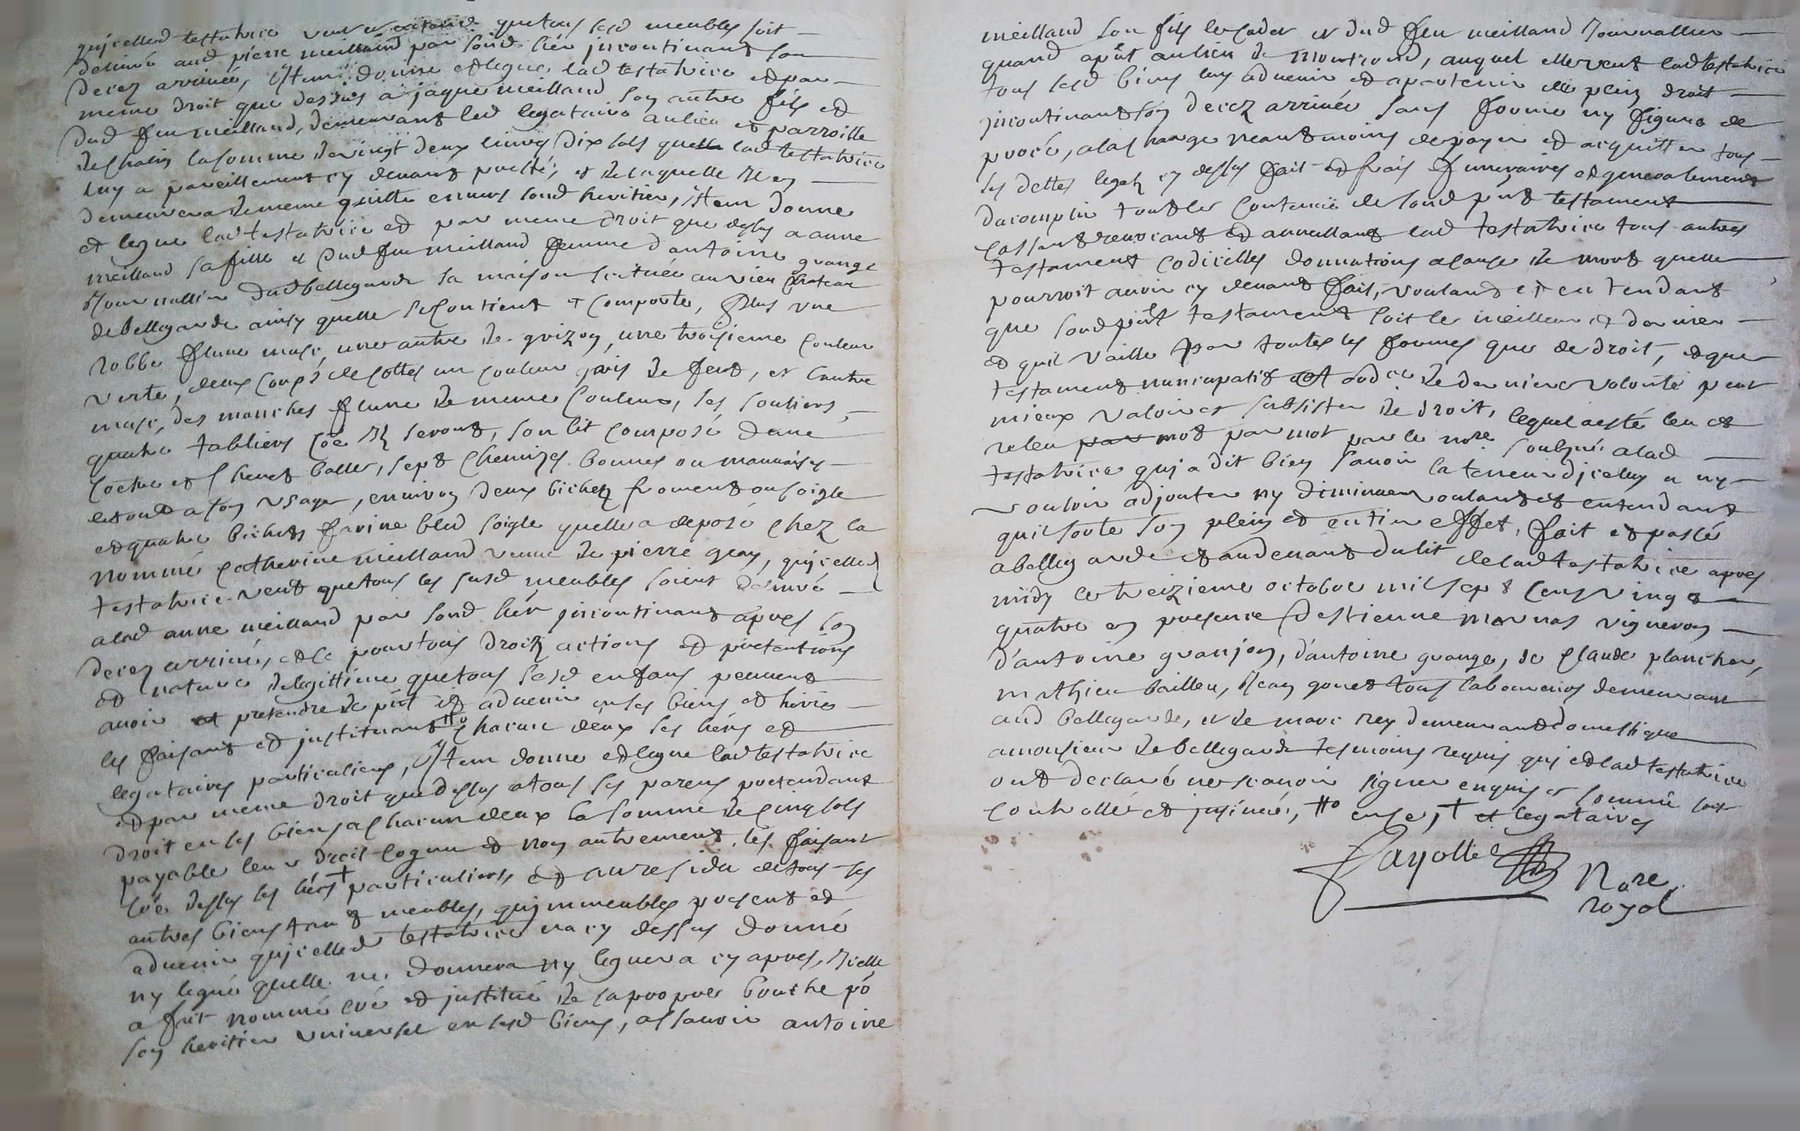 qu'icelled testatrice veut et entend que tous sesd meubles soit
delivré aud pierre meilland par sond her incontinant son
decez arrivée, Item donne et legue lad testatrice et par
meme droit que dessus a jaque meilland son autre fils et
dud feu meilland, demeurant led legataire au lieu et parroisse
de Chalin la somme de vingt deux livres dix sols que lad testatrice
luy a pareillement cy devant presté, et de laquelle il en
demeurera de meme quitte envers sond heritier, Item donne
et legue lad testatrice et par meme droit que dessus a anne
meilland sa fille et dud feu meilland femme d'antoine grange
Journallier dud bellegarde sa maison scituée au vieu chateau
de bellegarde ainsy quelle se contient et comporte, plus une
robbe flune musc, une autre de grizon, une troisieme couleur
verte, deux coups de cottes un couleur gris de fert, et l'autre
musc, des manches flune de meme couleur, ses souliers,
quatre tabliers coe ils seront, son lit composé dune
coetre et chevet balle, sept chemizes bonnes ou mauvaises
estant a son usage, environ deux bichez froment ou soigle
et quatre bichets farine bled soigle quelle a deposé chez la
nommé catherine meilland veuve de pierre gray, qu'icelled
testatrice veut que tous les susd meubles soient delivré
a lad anne meilland par sond her incontinant apres son
decez arrivée, et ce pour tous droitz actions et pretentions
et nature de legittime que tous sesd enfans peuvent
avoir et pretendre de pnt et advenir en ses biens et hoiries
les faisant et instituant #° chacun deux ses hers et
legataires particuliers, Item donne et legue lad testatrice
et par meme droit que dessus a tous ses parens pretendant
droit en ses biens a chacun deux la somme de cinq sols
payable leur droit cognu et non autrement, les faisant
coe dessus ses hers † particuliers, et au residu de tous ses
autres biens tant meubles, qu'immeubles present et
advenir qu'icelled testatrice na cy dessus donné
ny legué quelle ne donnera ny leguera cy apres, Icelle
a fait nommé créé et institué de sa propre bouche po
son heritier universel en sesd biens, assavoir antoine
meilland son fils le cadet et dud feu meilland Journallier
quand apnt au lieu de montrond, auquel elle veut lad testatrice
tous sesd biens luy advenir et apartenir de plein droit
incontinant son decez arrivée sans forme ny figure de
procé, a la charge neantmoins de payer et acquitter tous
ses dettes legatz cy dessus fait et frais funeraires et generalement
dacomplir tout le contenue de sond pnt testament
cassant revocant et annullant lad testatrice tous autres
testament codicelles donnations a cause de mort quelle
pourroit avoir cy devant fait, voulant et entendant
que sond pnt testament soit le meilleur et dernier
et quil vaille par toutes les formes que de droit, et que
testament nuncupatif et ordre de derniere volonté peut
mieux valoir et subsister de droit, lequel a esté leu et
releu par mot par mot par le nore soubzné a lad
testatrice qui a dit bien savoir la teneur d'icelluy n ny
vouloir adjouter ny diminuer voulant et entendant
quil sorte son plein et entier effet, fait et passé
a bellegarde et au devant du lit de lad testatrice apres
midy le treizieme octobre mil sept cens vingt
quatre en presence destienne mornas vigneron
d'antoine granjon, d'antoine grange, de claude plancher,
mathieu baillen, Jean gonet tous laboureurs demeurant
aud bellegarde, et de marc rey demeurant domestique
a monsieur de bellegarde tesmoins requis qui et lad testatrice
ont declaré ne scavoir signer enquis et sommé soit
controllée et jnsinué, #° en ce, † et legataires
Fayolle
Nore
royal